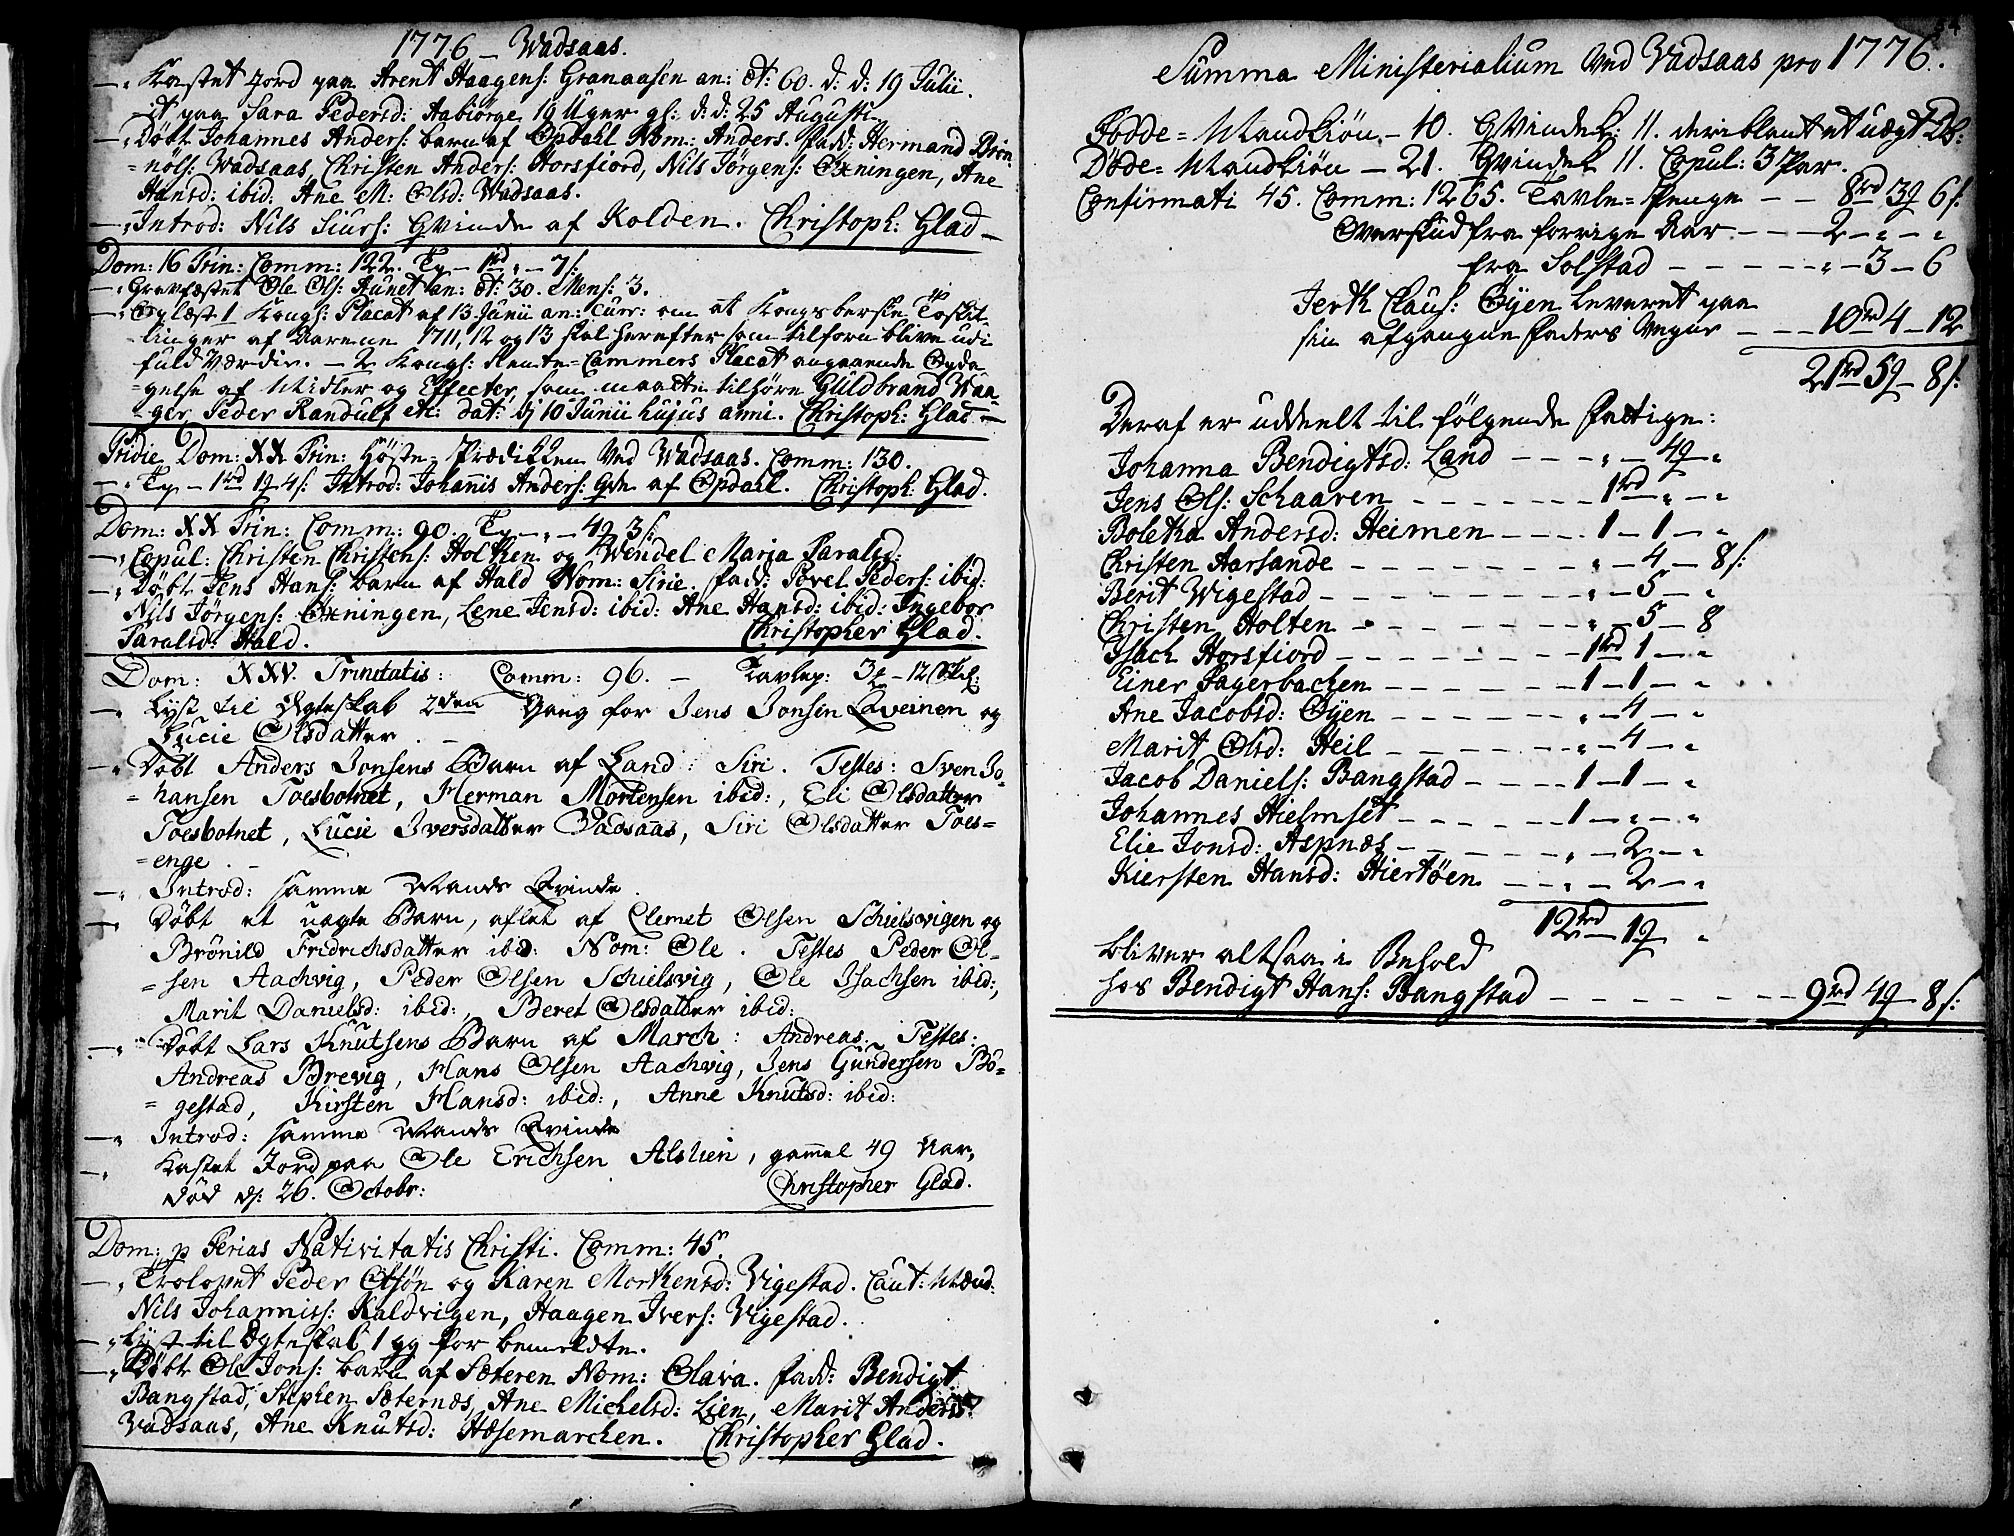 1776 – Wadsaas.
– „ Kastet Jord paa Arent Haagens: Granaasen an: æt: 60. d: d: 19 Julii.
– it paa Sara Pedersd: Aabiörge 19 Uger gl: d: d: 25 Augusti.
– „ Döbt Johannes Anders: barn af Opdahl Nom: Anders. fadd: Hermand Brön-
= nöls: Wadsaas, Christen Anders: Horsfiord, Nils Jörgens: Öxningen, Ane
Hansd: ibid: Ane M: Olsd: Wadsaas.
– „ Introd: Nils Siurs: Qvinde af Kolden. Christoph: Glad –
Dom: 16 Trin: Comm: 122. Tp – 1rd „ – 7 s:
– „ Gravfæstet Ole Ols: Aunet an: æt: 30. Mens: 3.
– „ Oplæst 1 Kongs: Placat af 13 Junii an: curr: om at Kongsberske Toskil-
= linger af Aarene 1711, 12 og 13 skal herefter som tilforn blive udi
fuld Værdie. – 2 Kongs: Rente-Cammers Placat angaaende Opda-
= gelse af Midler og Effecter, som maatte tilhöre Guldbrand Waa-
= ger Peder Randulf etc: dat: 10 Junii hujus anni. Christoph: Glad –
Pridie Dom: XX Trin: Höste-Prædikken Ved Wadsaas. Comm: 130.
– „ Tp – 1rd 1q 4 s: Introd: Johanis Anders: Qde af Opdahl. Christoph: Glad.
Dom: XX Trin: Comm: 90. Tp – „ – 4q 3 s:
– „ Copul: Christen Christens: Holthen og Wendel Maria Taralsd:
– „ Döbt Jens Hans: barn af Hald Nom: Sirie. fadd: Povel Peders: ibid:
Nils Jörgens: Öxningen, Lene Jensd: ibid: Ane Hansd: ibid: Ingebor
Taralsd: Hald. Christopher Glad.
Dom: XXV. Trinitatis: Comm: 96. – Tavlep: 3q – 12 Skl:
– „ Lyst til Ægteskab 2den Gang for Jens Jonsen Qveinen og
Lucie Olsdatter. –
– „ Döbt Anders Jonsens Barn af Land: Siri. Testes: Sven Jo-
= hansen Toesbotnet, Herman Mortensen ibid:, Eli Olsdatter
Toesbotnet, Lucie Iversdatter Vadsaas, Siri Olsdatter Toes=
= enge. –
– „ Introd: samme Mands Qvinde.
– „ Döbt et uægte Barn, aflet af Clemet Olsen Schielsvigen og
Brönild Fridrichsdatter ibid: Nom: Ole. Testes Peder Ol-
= sen Aachvig, Peder Olsen Schielsvig, Ole Isachsen ibid:,
Marit Danielsd: ibid:, Beret Olsdatter ibid:
– „ Döbt Lars Knutsens Barn af March: Andreas. Testes:
Andreas Brevig, Hans Olsen Aachvig, Jens Gundersen Bö-
= gestad, Kirsten Hansd: ibid:, Anne Knutsd: ibid:
– „ Introd: samme Mands Qvinde
– „ Kastet Jord paa Ole Erichsen Alslien, gammel 49 Aar,
död d: 26. Octobr: Christopher Glad.
Dom: p Ferias Nativitatis Christi. Comm: 45.
– „ Trolovet Peder Olsön og Karen Morthensd: Vigestad. Caut: Mænd:
Nils Johanniss: Kaldvigen, Haagen Ivers: Vigestad.
– „ Lyst til Ægteskab 1 gg for bemeldte.
– „ Döbt Ole Jons: barn af Sæteren Nom: Olava. fadd: Bendigt
Bangstad, Stephen Sæternæs, Ane Michelsd: Lien, Marit Andersd:
Vadsaas, Ane Knutsd: Hæsemarchen. Christopher Glad.
Summa Ministerialium Ved Vadsaas pro 1776.
Födde = Mandkiön – 10. Qvindek: 11. deriblant et uægte
Döde = Mandkiön – 21. Qvindek 11. Copul: 3 Par.
Confirmati 45. Comm: 1265. Tavle-Penge – – 8rd 3q 6 s:
Overskud fra forrige Aar – – – 2 – „ – „
fra Solstad – – – – – „ – 3 – 6
Jerth Claus: Öyen leveret paa
sin afgangne Faders Vegne – – – 10rd 4 – 12
21rd 5q – 8 s:
Deraf er uddeelt til fölgende fattige:
Johanna Bendigtsd: Land – – – „ – 4q – „
Jens Ols: Schaaren – – – – – – – 1rd „ – „
Boletha Andersd: Heimen – – – – 1 – 1 – „
Christen Aarsande – – – – – – – „ – 4 – 8 s:
Berit Wigestad – – – – – – – – „ – 5 – „
Christen Holten – – – – – – – „ – 5 – 8
Isach Horsfiord – – – – – – – – 1rd 1 – „
Einer Fagerbachen – – – – – – 1 – 1 – „
Ane Jacobsd: Öyen – – – – – – „ – 4 – „
Marit Olsd: Heil – – – – – – – „ – 4 – „
Jacob Daniels: Bangstad – – – – 1 – 1 – „
Johannes Hielmset – – – – – – 1 – „ – „
Elie Jonsd: Aspnæs – – – – – – „ – 2 – „
Kiersten Hansd: Hiertöen – – „ – 2 – „
12rd – 1q „
bliver altsaa i Behold
hos Bendigt Hans: Bangstad – – – – – – – 9rd 4q – 8 s: